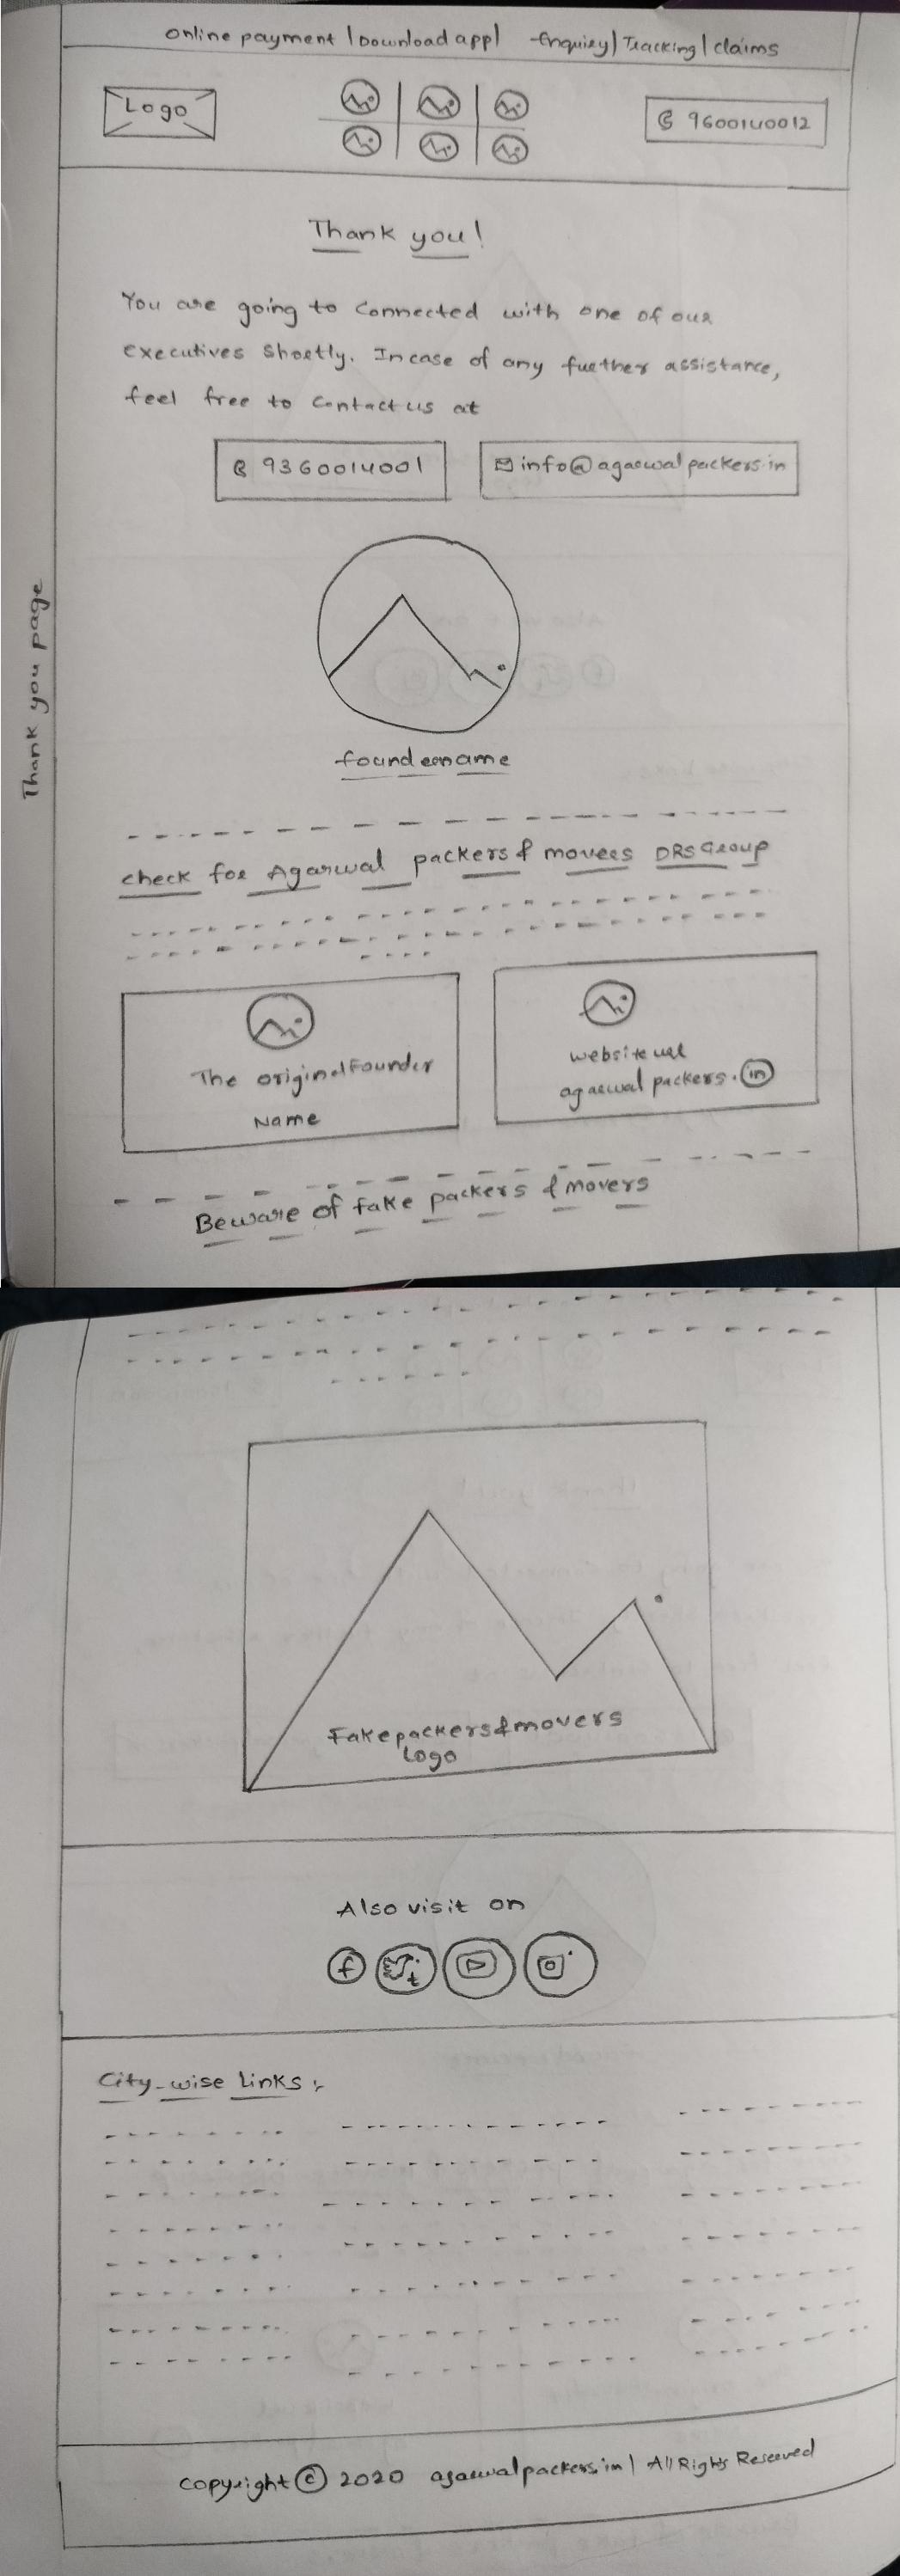 Online payment | Download app | Enquiry | Tracking | claims
Logo
9600140012
Thank you!
You are going to connected with one of our
executives shortly. Incase of any further assistance,
feel free to contact us at
9360014001
info@agarwalpackers.in
foundername
Thank you page
check for Agarwal packers & movers DRS Group
The original Founder
Name
website url
agarwal packers.in
Beware of fake packers & movers
Fake packers & movers
Logo
Also visit on
City-wise links:-
Copyright © 2020 agarwalpackers.in | All Rights Reserved